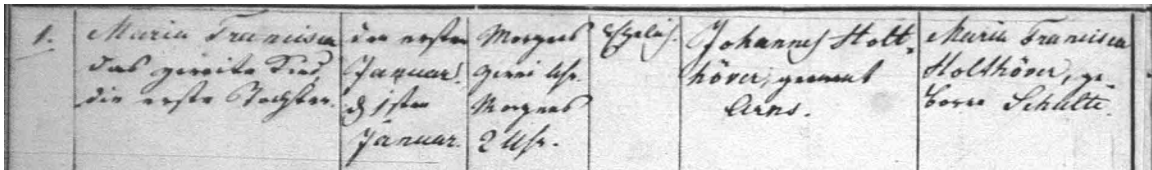 1.
Maria Francisca
das zweite Kind,
die erste Tochter.
den ersten
Januar.
d 1sten
Januar.
Morgens
zwei Uhr.
Morgens
2 Uhr.
Ehelich.
Johannes Holt-
höver, genannt
Arns.
Maria Francisca
Holthöver, ge-
borne Schulte.